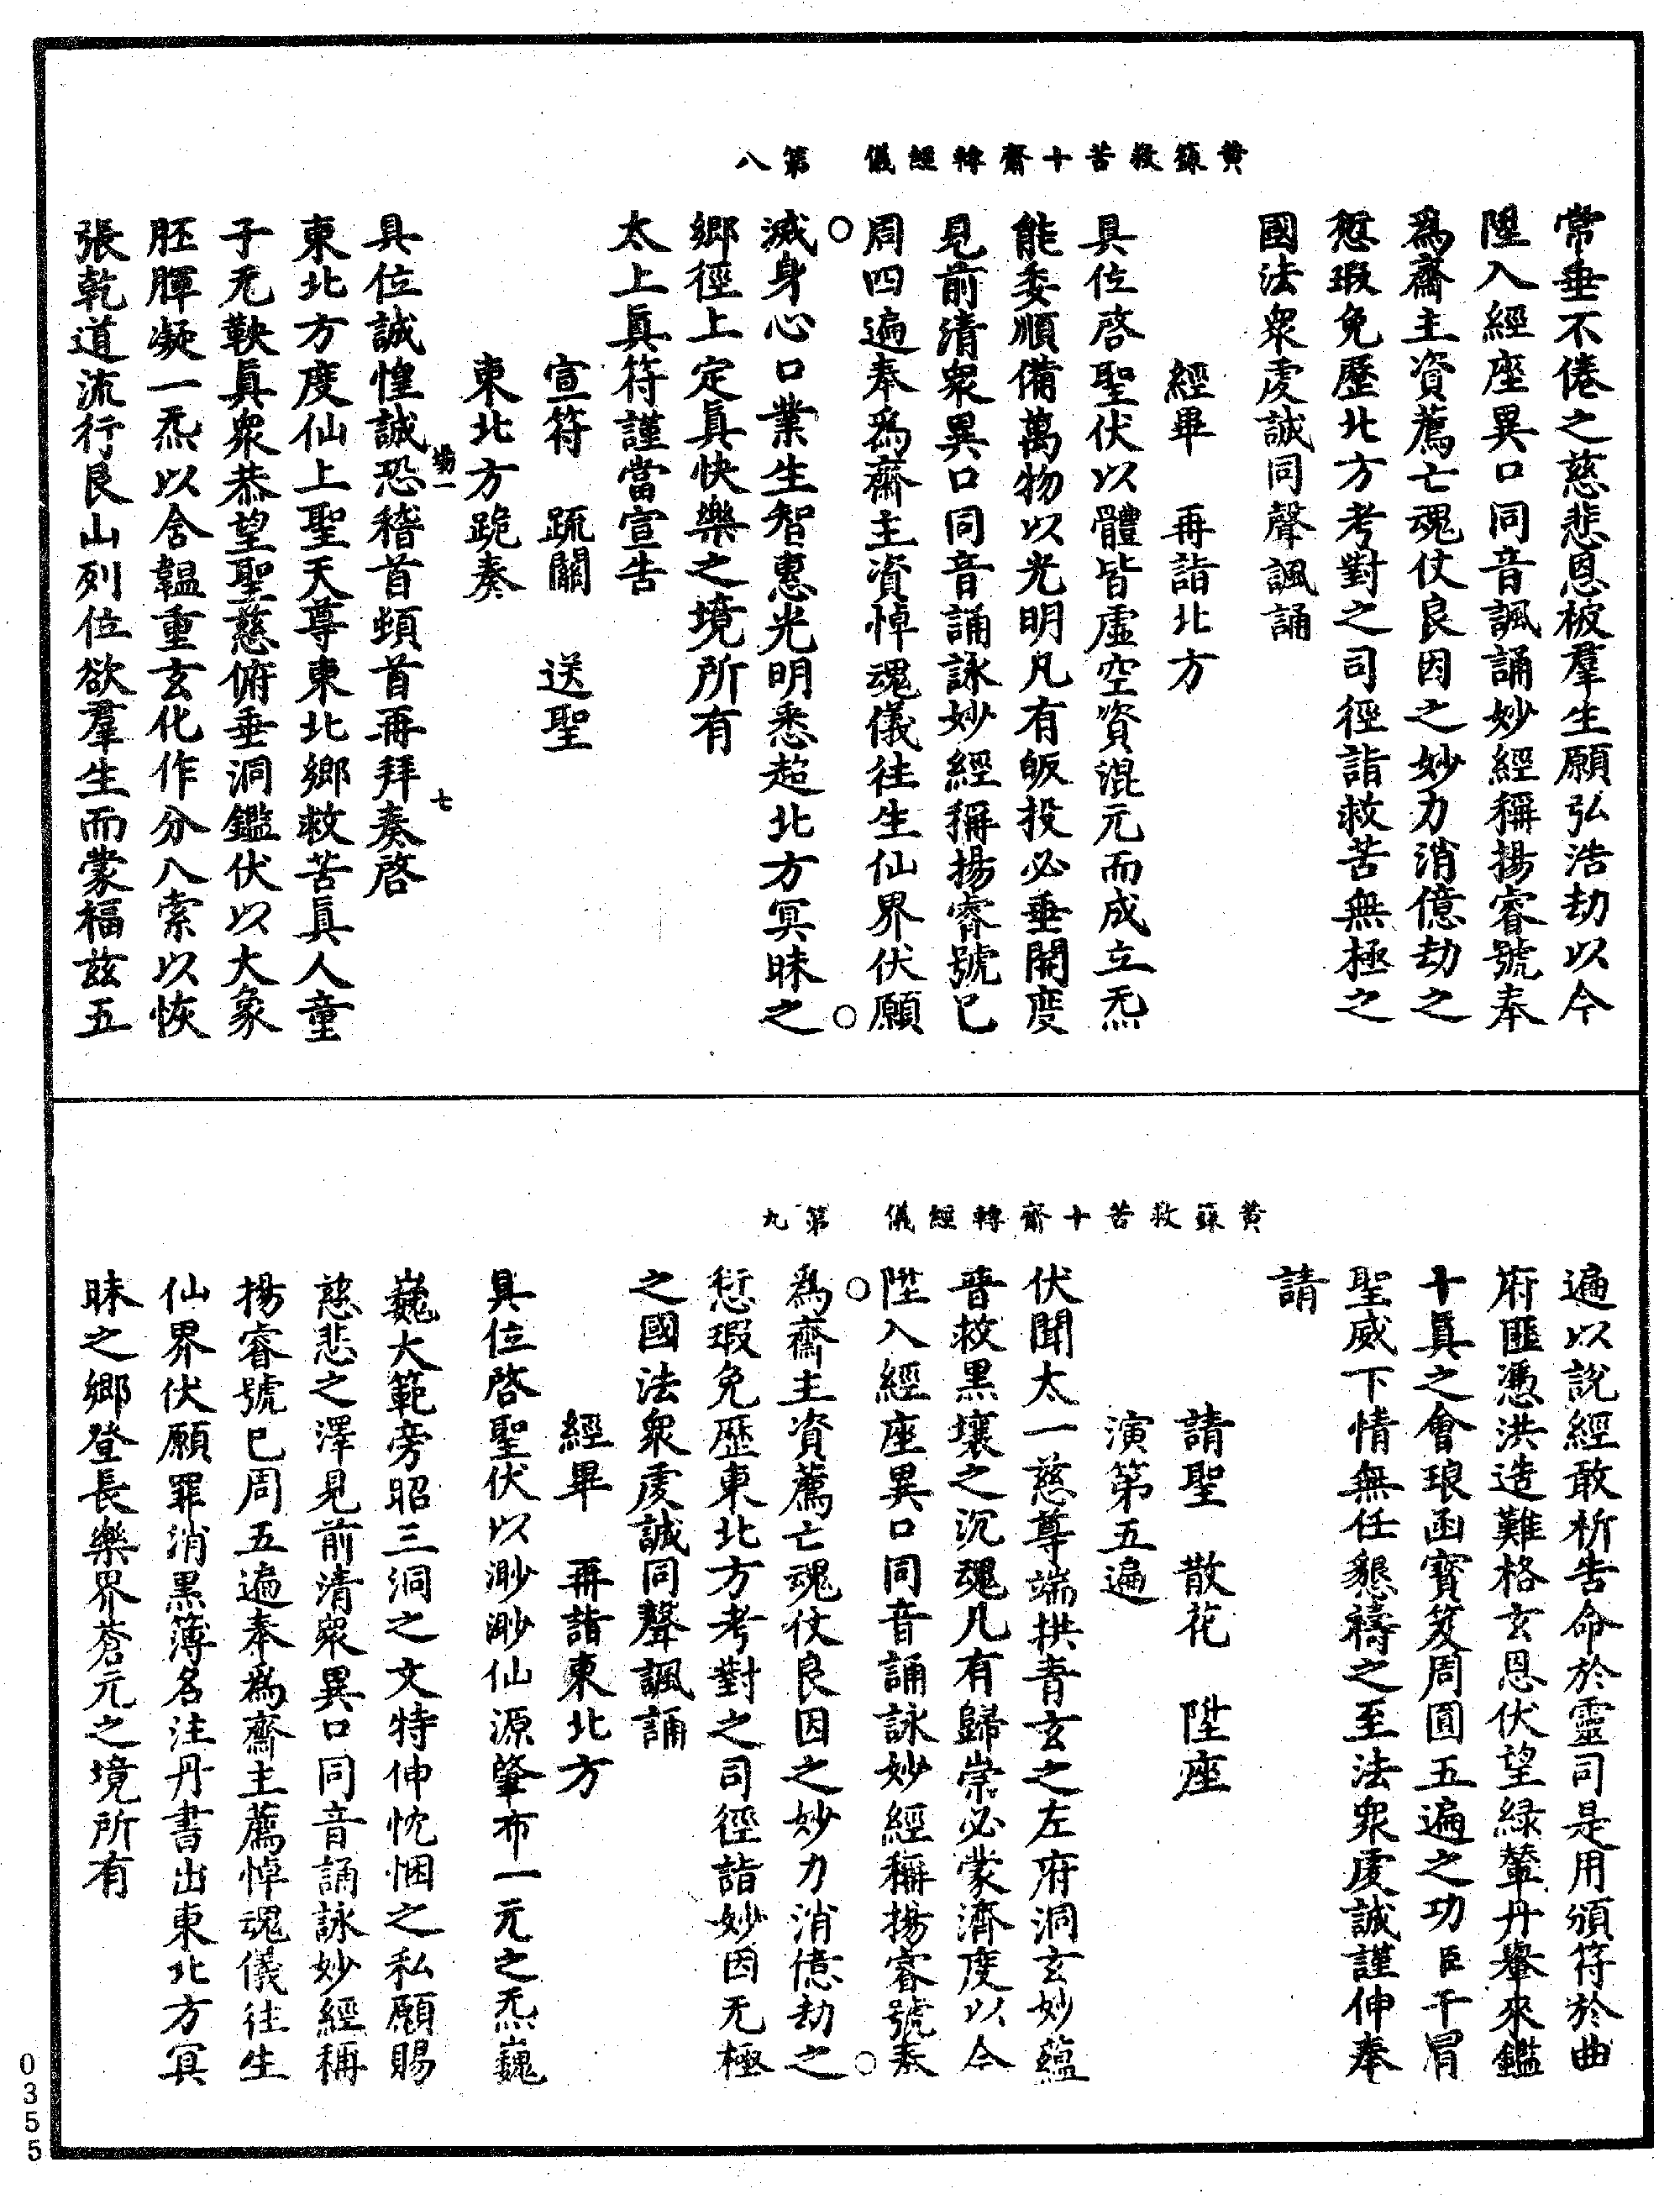 黄籙救苦十齋轉經儀　第八
常垂不倦之慈悲恩被羣生願弘浩劫以今
陞入經座異口同音諷誦妙經稱揚睿號奉
爲齋主資薦亡魂仗良因之妙力消億劫之
愆瑕免歷北方考對之司徑詣救苦無極之
國法衆虔誠同聲諷誦
經畢　再詣北方
具位啓聖伏以體皆虛空資混元而成立炁
能委順備萬物以光明凡有皈投必垂開度
見前清衆異口同音誦詠妙經稱揚睿號已
周四遍奉爲齋主資悼魂儀往生仙界伏願
滅身心口業生智惠光明悉超北方冥昧之
鄉徑上定眞快樂之境所有
太上眞符謹當宣告
宣符　疏關　送聖
東北方跪奏
具位誠惶誠恐稽首頓首再拜奏啓
東北方度仙上聖天尊東北鄉救苦眞人童
子无鞅眞衆恭望聖慈俯垂洞鑑伏以大象
胚腪凝一炁以含韞重玄化作分八索以恢
張乾道流行艮山列位欲羣生而蒙福兹五
黄籙救苦十齋轉經儀　第九
遍以說經敢析告命於靈司是用頒符於曲
府匪憑洪造難格玄恩伏望緑輦丹轝來鑑
十眞之會琅函寶笈周圓五遍之功臣干冒
聖威下情無任懇禱之至法衆虔誠謹伸奉
請
請聖　散花　陞座
演第五遍
伏聞太一慈尊端拱青玄之左府洞玄妙蘊
普救黑壤之沉魂凡有歸崇必蒙濟度以今
陞入經座異口同音誦詠妙經稱揚睿號奉
爲齋主資薦亡魂仗良因之妙力消億劫之
愆瑕免歷東北方考對之司徑詣妙因无極
之國法衆虔誠同聲諷誦
經畢　再詣東北方
具位啓聖伏以渺渺仙源肇布一元之炁巍
巍大範旁昭三洞之文特伸忱悃之私願賜
慈悲之澤見前清衆異口同音誦詠妙經稱
揚睿號已周五遍奉爲齋主薦悼魂儀往生
仙界伏願罪消黒簿名注丹書出東北方冥
昧之鄉登長樂界蒼元之境所有
0355